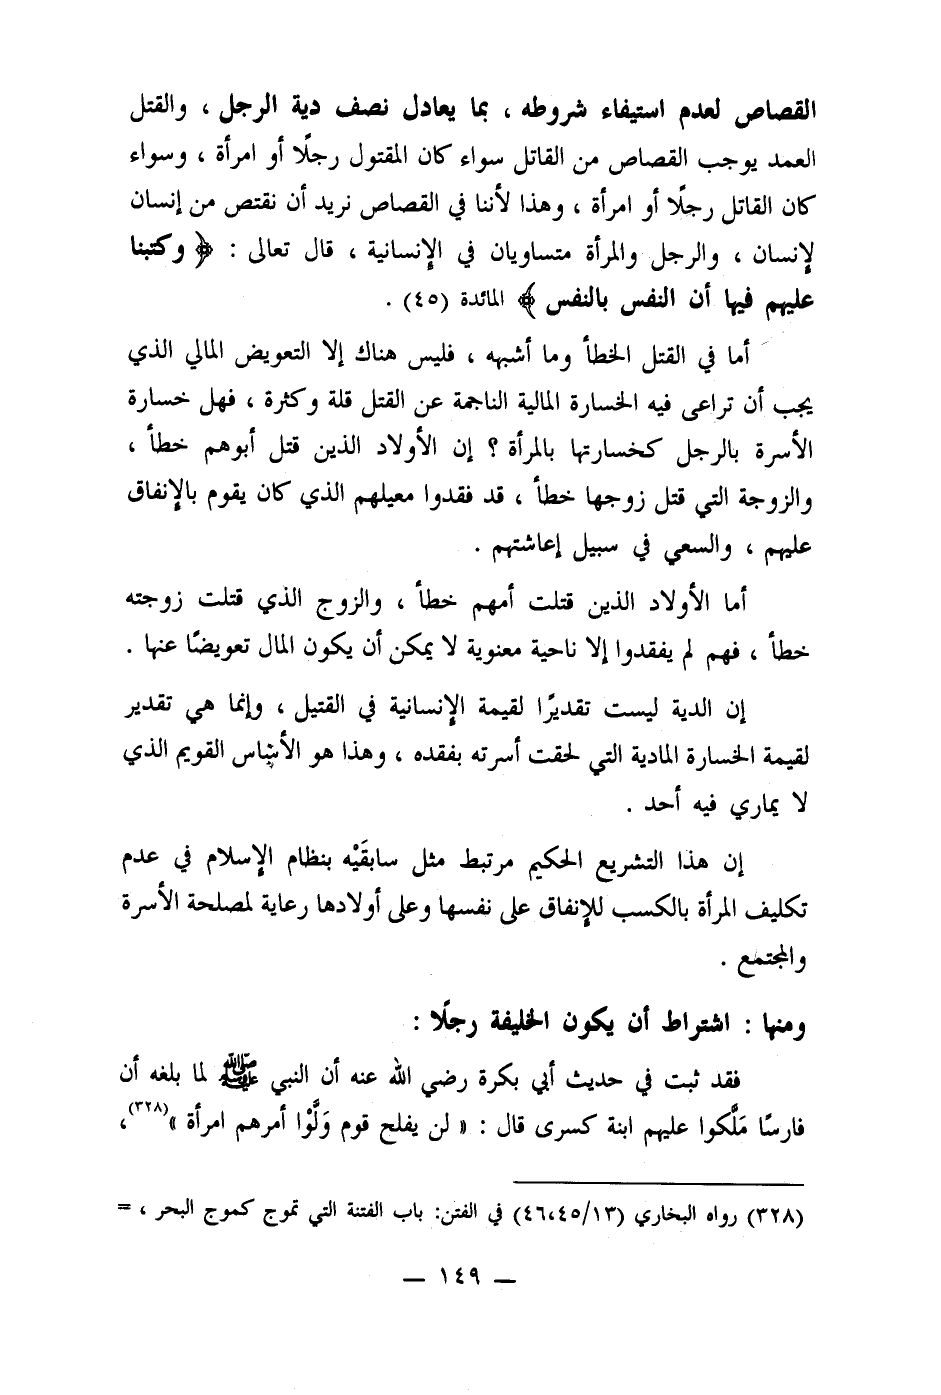 القصاص لعدم استيفاء شروطه ، بما يعادل نصف دية الرجل ، والقتل
العمد يوجب القصاص من القاتل سواء كان المقتول رجلًا أو امرأة ، وسواء
كان القاتل رجلًا أو امرأة ، وهذا لأننا في القصاص نريد أن نقتص من إنسان
لإنسان ، والرجل والمرأة متساويان في الإنسانية ، قال تعالى : ﴿ وكتبنا
عليهم فيها أن النفس بالنفس ﴾ المائدة (٤٥) .
أما في القتل الخطأ وما أشبهه ، فليس هناك إلا التعويض المالي الذي
يجب أن تراعى فيه الخسارة المالية الناجمة عن القتل قلة وكثرة ، فهل خسارة
الأسرة بالرجل كخسارتها بالمرأة ؟ إن الأولاد الذين قتل أبوهم خطأ ،
والزوجة التي قتل زوجها خطأ ، قد فقدوا معيلهم الذي كان يقوم بالإنفاق
عليهم ، والسعي في سبيل إعاشتهم .
أما الأولاد الذين قتلت أمهم خطأ ، والزوج الذي قتلت زوجته
خطأ ، فهم لم يفقدوا إلا ناحية معنوية لا يمكن أن يكون المال تعويضًا عنها .
إن الدية ليست تقديرًا لقيمة الإنسانية في القتيل ، وإنما هي تقدير
لقيمة الخسارة المادية التي لحقت أسرته بفقده ، وهذا هو الأساس القويم الذي
لا يماري فيه أحد .
إن هذا التشريع الحكيم مرتبط مثل سابقَيْه بنظام الإسلام في عدم
تكليف المرأة بالكسب للإنفاق على نفسها وعلى أولادها رعاية لمصلحة الأسرة
والمجتمع .
ومنها : اشتراط أن يكون الخليفة رجلًا :
فقد ثبت في حديث أبي بكرة رضي الله عنه أن النبي ﷺ لما بلغه أن
فارسًا مَلَّكوا عليهم ابنة كسرى قال : « لن يفلح قوم وَلَّوْا أمرهم امرأة »(٣٢٨)،
(٣٢٨) رواه البخاري (٤٦،٤٥/١٣) في الفتن: باب الفتنة التي تموج كموج البحر ، =
— ١٤٩ —